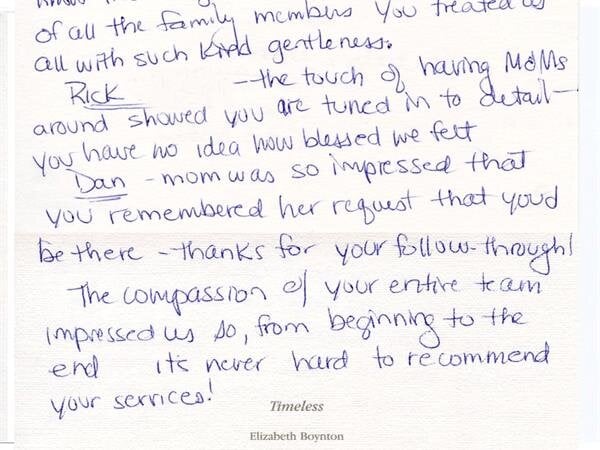 of all the family members you treated us
all with such kind gentleness.
Rick - the touch of having M&Ms
around showed you are tuned in to detail -
you have no idea how blessed we felt
Dan - mom was so impressed that
you remembered her request that youd
be there - thanks for your follow-through!
The compassion of your entire team
impressed us so, from beginning to the
end its never hard to recommend
your services!
Timeless
Elizabeth Boynton